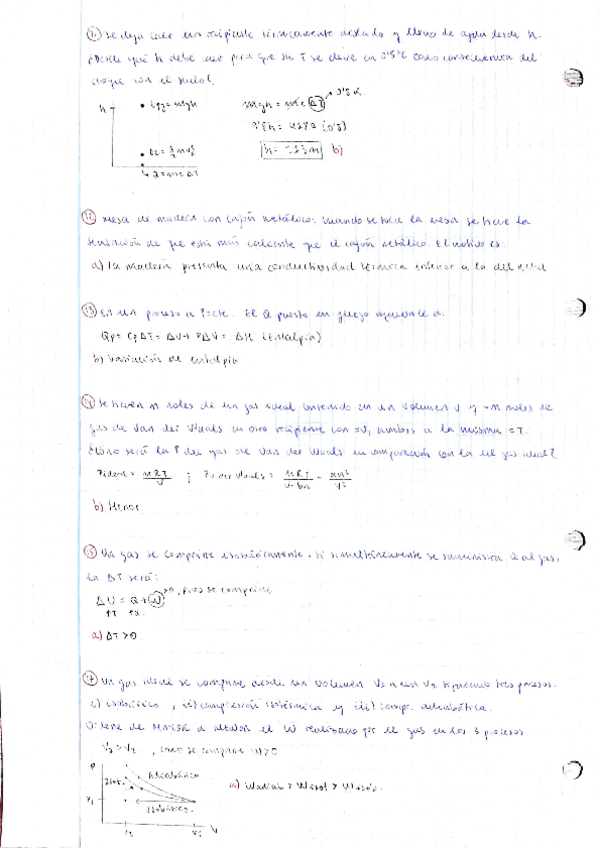 11) Se deja caer un recipiente térmicamente aislado y lleno de agua desde h.
¿Desde qué h debe caer para que su T se eleve en 0'5°C como consecuencia del
choque con el suelo?
h
Epg = mgh
mgh = mc ΔT
0'5 K
9'8h = (0'5)
b)
Ec = ½mv²
Q = mc ΔT
12) Mesa de madera con cajón metálico; cuando se toca la mesa se tiene la
sensación de que está más caliente que el cajón metálico. El motivo es:
a) La madera presenta una conductividad térmica inferior a la del metal
13) En un proceso a P=cte. El Q puesto en juego equivale a:
Qp = CpΔT = ΔU + PΔV = ΔH (Entalpía)
b) Variación de entalpía
14) Se tienen n moles de un gas ideal contenido en un volumen V y n moles de
gas de Van der Waals en otro recipiente con =V, ambos a la misma =T.
¿Cómo será la P del gas de Van der Waals en comparación con la del gas ideal?
P ideal = nRT/V ; P van der Waals = nRT/V-bn - an²/V²
b) Menor
15) Un gas se comprime isobáricamente. Si simultáneamente se suministra Q al gas,
la ΔT será:
ΔU = Q + W >0, pues se comprime
↑T ↑Q
a) ΔT > 0
17) Un gas ideal se comprime desde un volumen V₁ a un V₂ siguiendo tres procesos.
i) isobárico, ii) compresión isotérmica y iii) compr. adiabática.
Ordene de mayor a menor el W realizado por el gas en los 3 procesos
, como se comprime W>0
P
Adiabático
Isot.
isobárico
V
a) Wadiab > Wisot > Wisob.